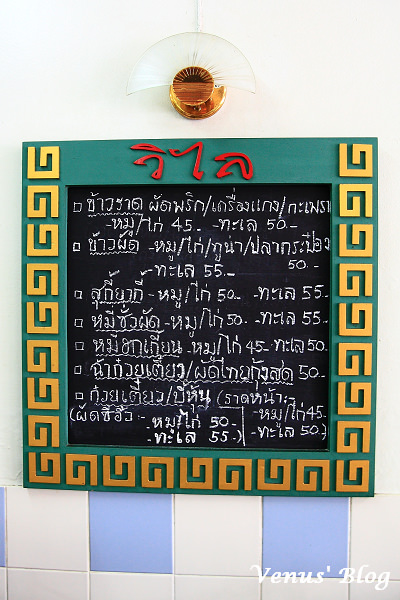 วิไล
ข้าวราด ผัดพริก/เครื่องแกง/กะเพรา
-หมู/ไก่ 45.- -ทะเล 50.-
ข้าวผัด -หมู/ไก่/ปูน่า/ปลากระป๋อง
-ทะเล 55.- 50.-
สุกี้ยากี้ -หมู/ไก่ 50.- -ทะเล 55.-
หมี่ซั่วผัด -หมู/ไก่ 50.- -ทะเล 55.-
หมี่ฮกเกี้ยน -หมู/ไก่ 45 -ทะเล 50.-
ก๋วยเตี๋ยว/ผัดไทยกุ้งสด 50.-
ก๋วยเตี๋ยว/บีหุ้น (ราดหน้า: -หมู/ไก่ 45-
(ผัดซีอิ๊ว: -หมู/ไก่ 50.- -ทะเล 50.-)
-ทะเล 55.-)
Venus' Blog